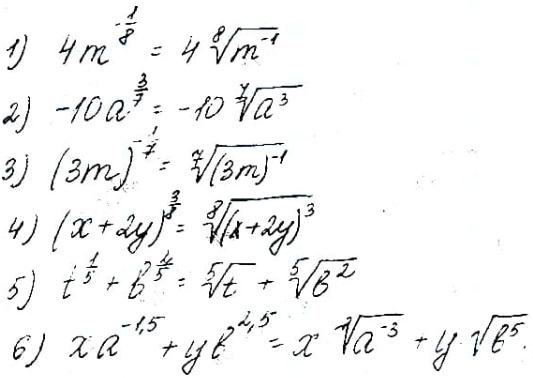 1) 4m^{-1/8} = 4 ⁸√(m⁻¹)
2) -10a^{3/7} = -10 ⁷√(a³)
3) (3m)^{-1/7} = ⁷√((3m)⁻¹)
4) (x+2y)^{3/8} = ⁸√((x+2y)³)
5) t^{1/5} + b^{2/5} = ⁵√t + ⁵√(b²)
6) xa^{-1,5} + yb^{2,5} = x √(a⁻³) + y √(b⁵).